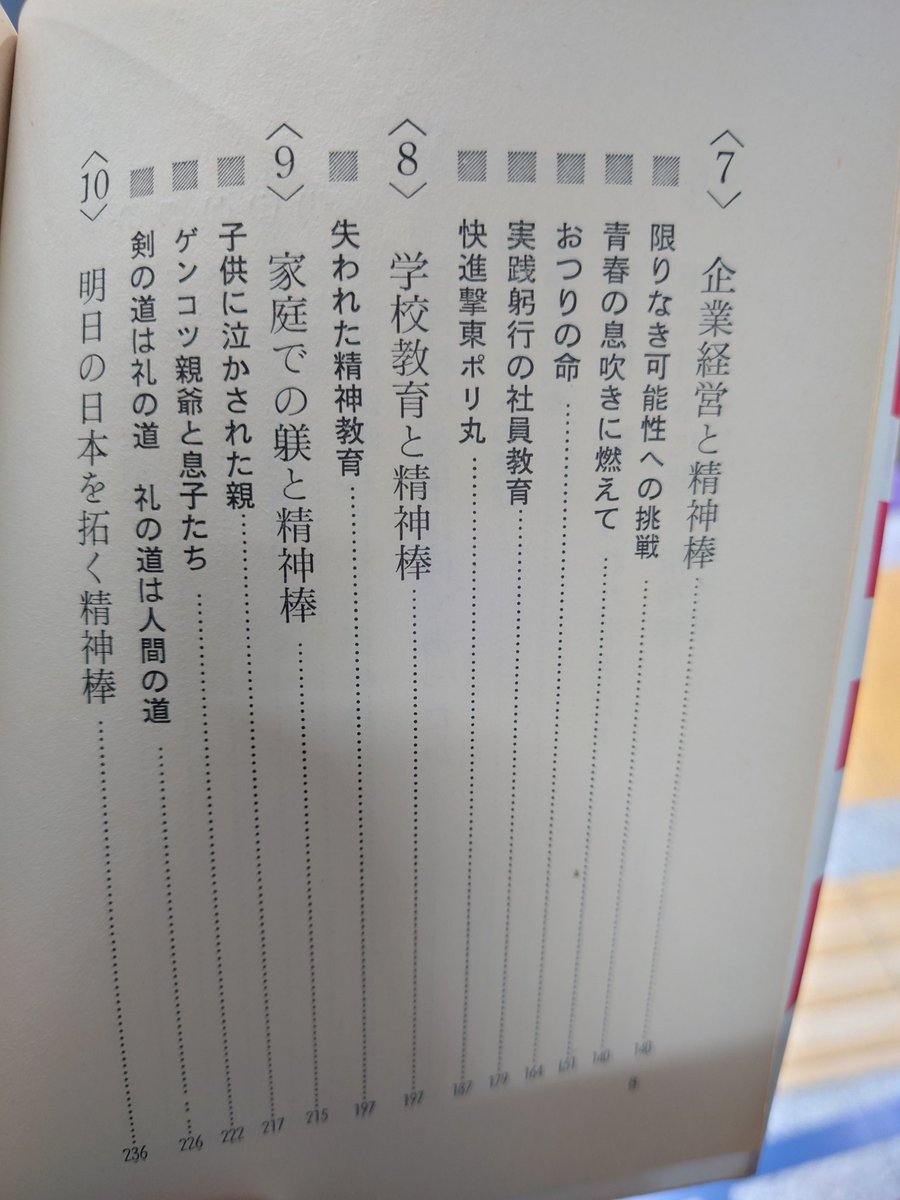 〈7〉 企業経営と精神棒……140
限りなき可能性への挑戦……140
青春の息吹きに燃えて……151
おつりの命……164
実践躬行の社員教育……179
快進撃東ポリ丸……187
〈8〉 学校教育と精神棒……197
失われた精神教育……197
〈9〉 家庭での躾と精神棒……215
子供に泣かされた親……217
ゲンコツ親爺と息子たち……222
剣の道は礼の道　礼の道は人間の道……226
〈10〉 明日の日本を拓く精神棒……236